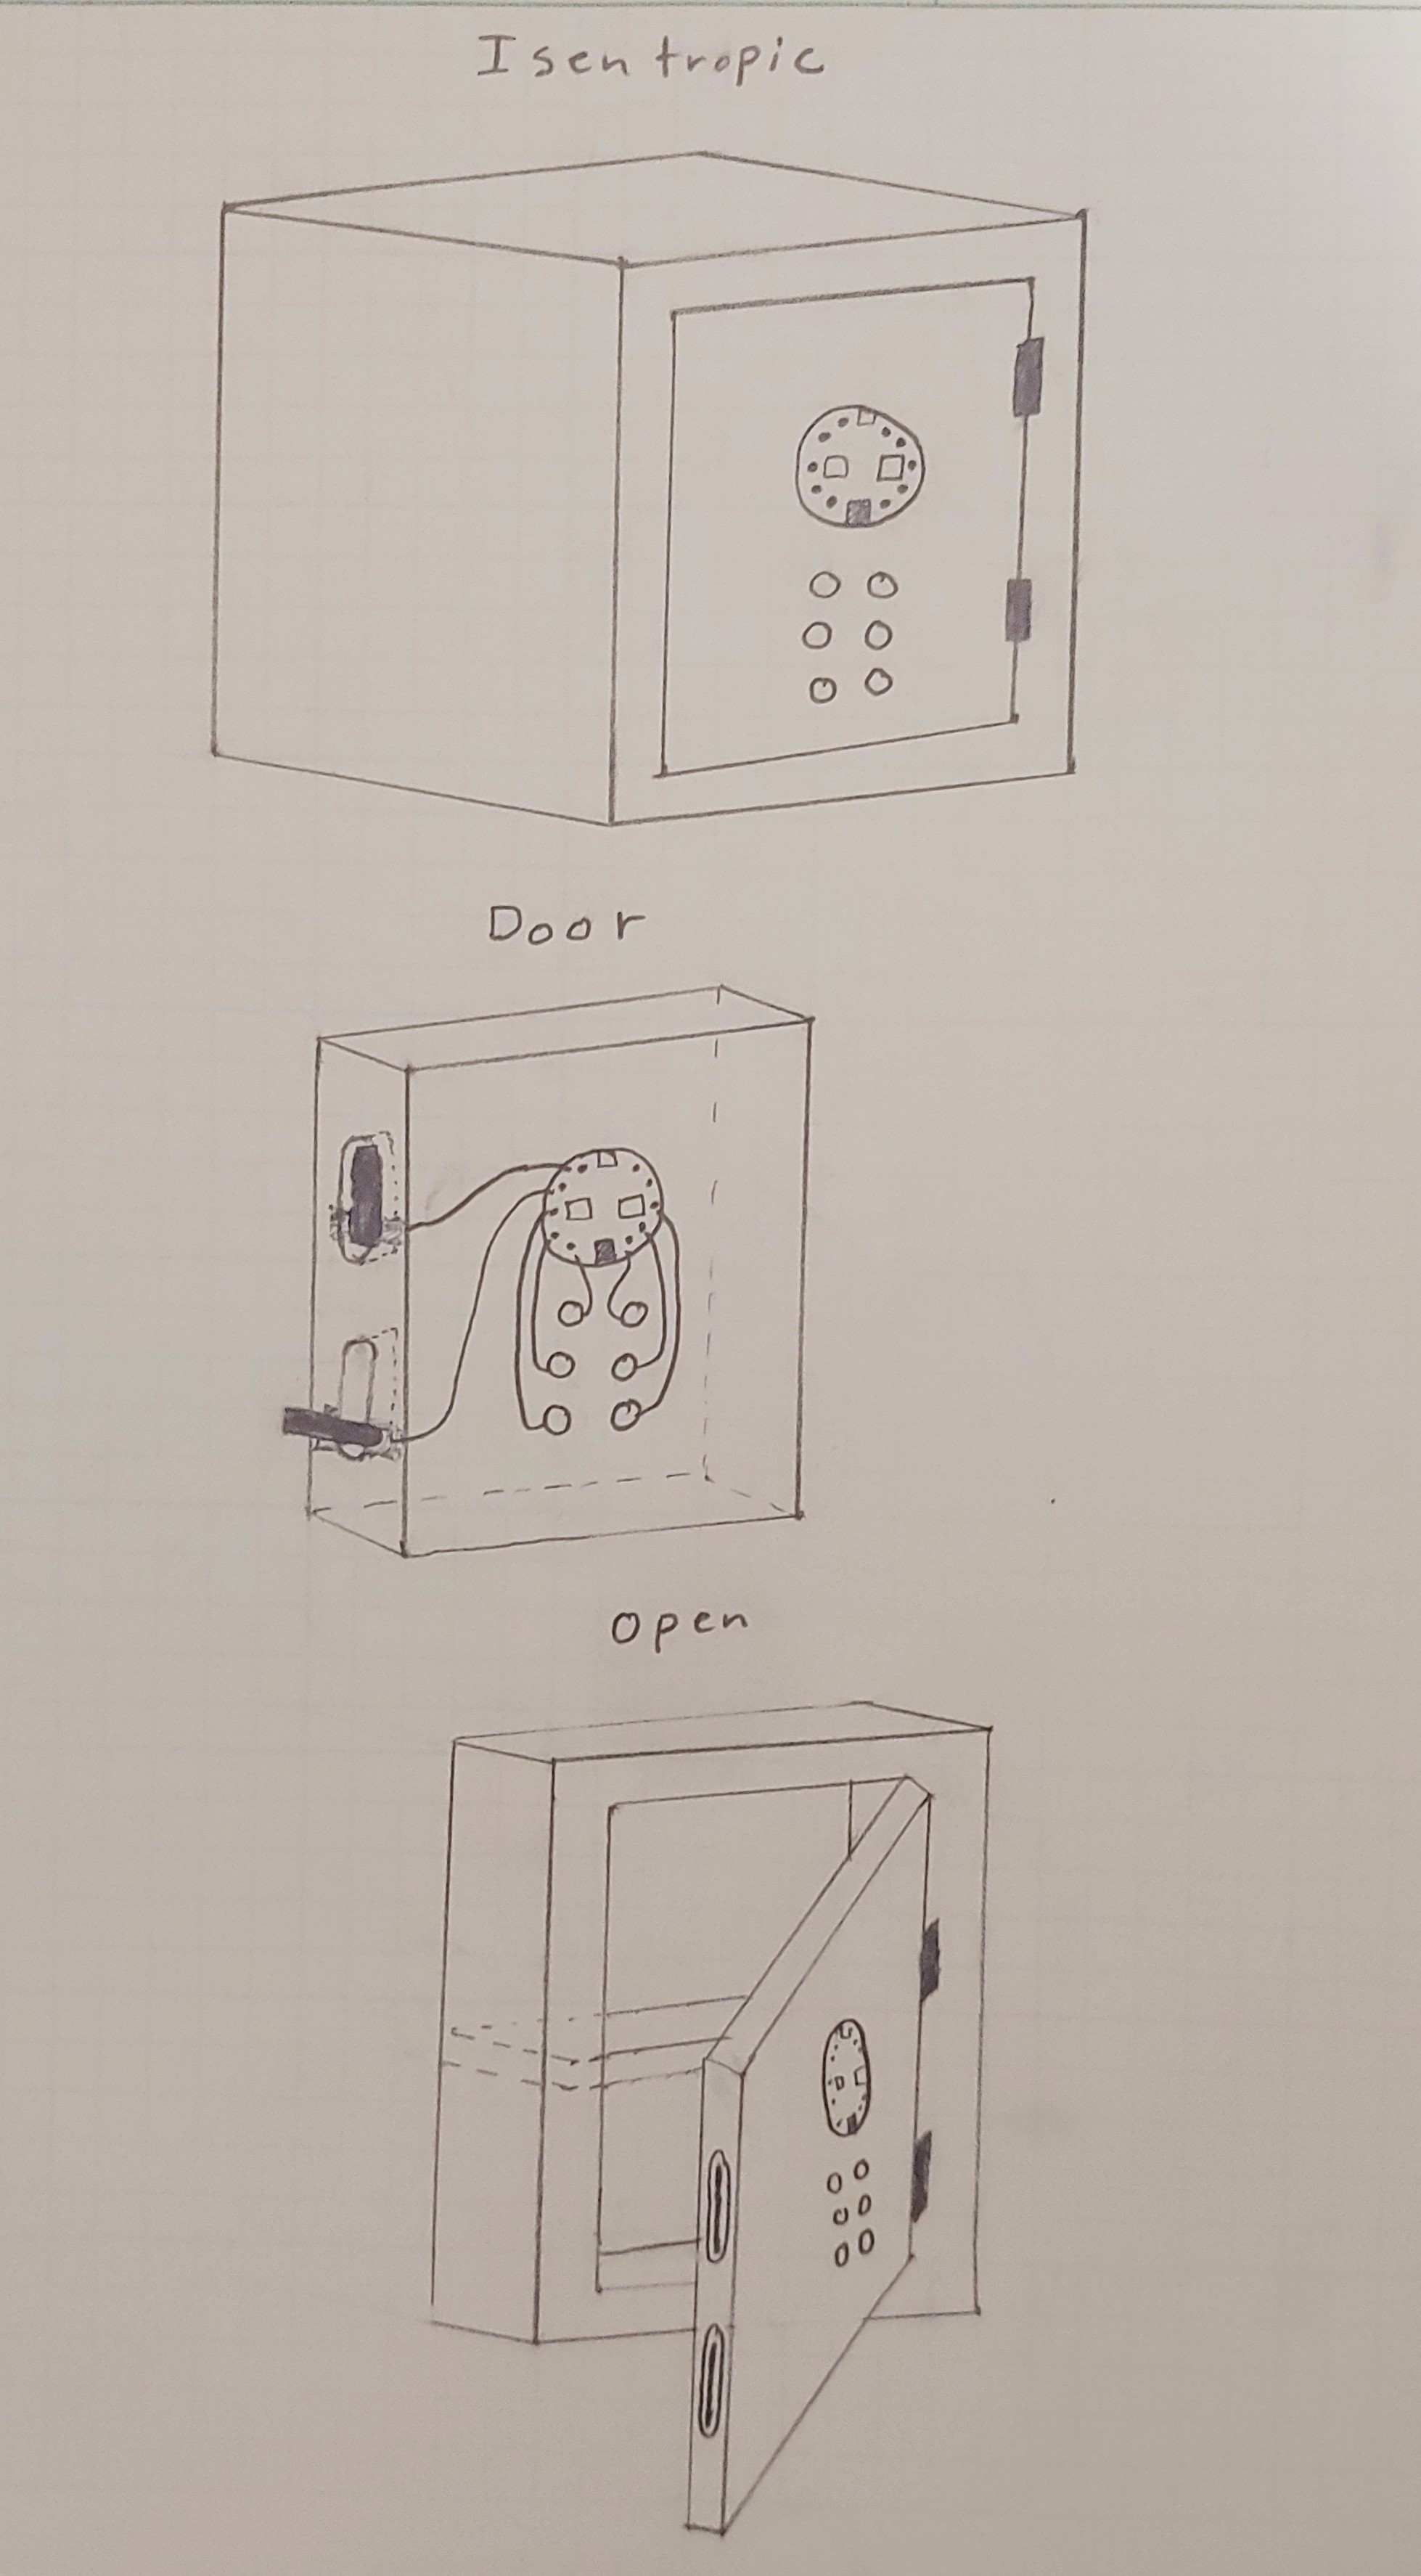 Isentropic
Door
Open